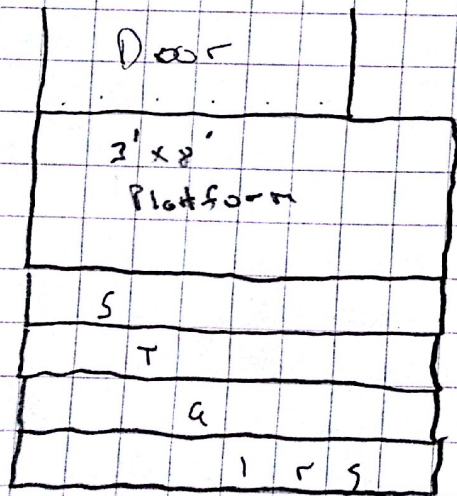 Door
3' x 8'
Platform
S
T
a
i r s